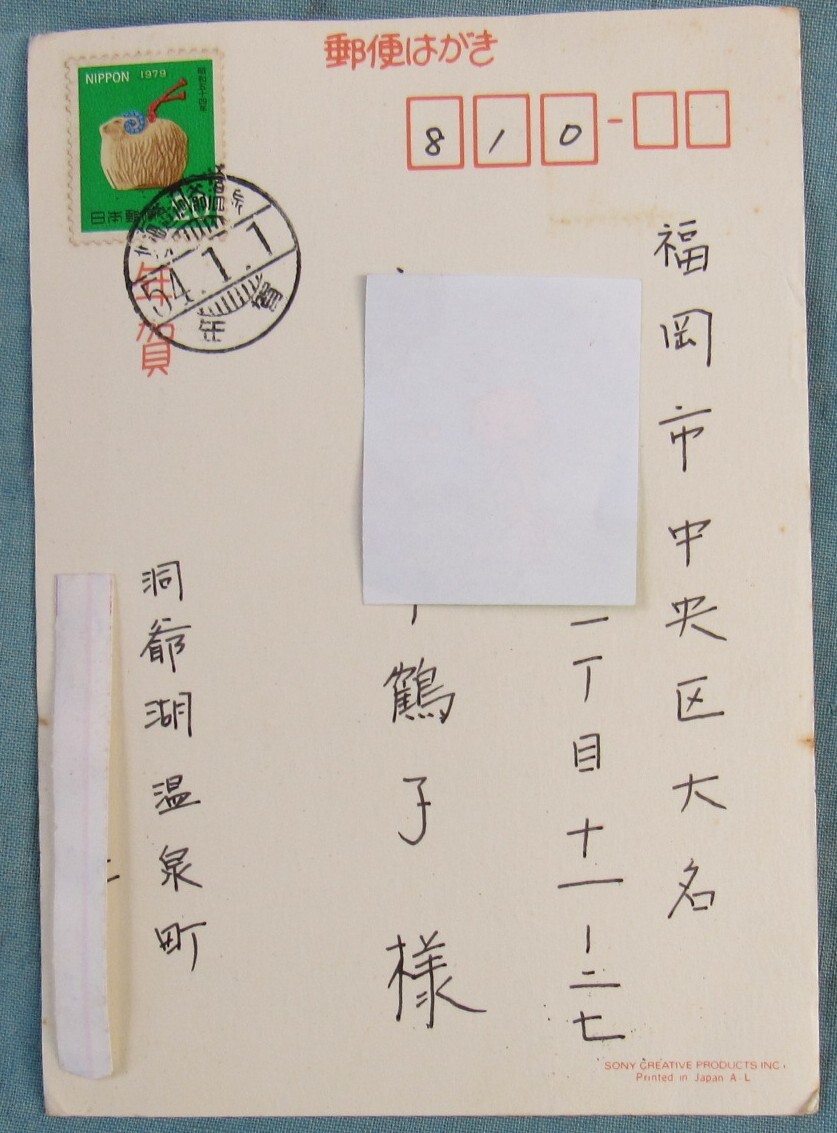 郵便はがき
NIPPON 1979
昭和五十四年
日本郵便
54.1.1
年賀
年賀
810-
福岡市中央区大名
一丁目十一ー二七
鶴子様
洞爺湖温泉町
SONY CREATIVE PRODUCTS INC.
Printed in Japan A L